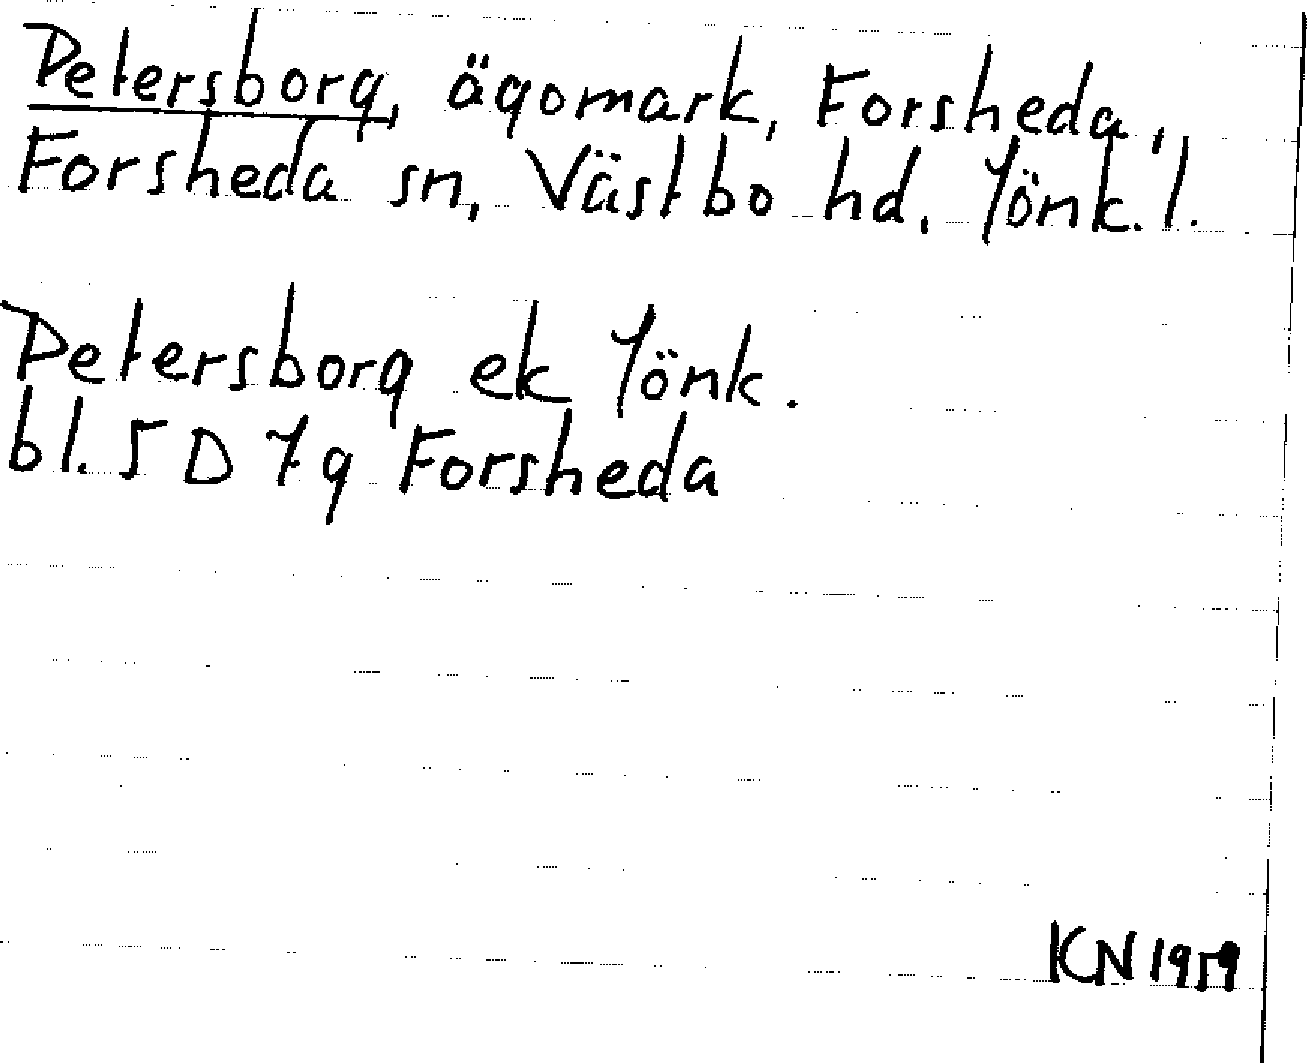 Petersborg, ägomark, Forsheda,
Forsheda sn, Västbo hd, Jönk. l.
Petersborg ek Jönk.
bl. 5 D 7 g Forsheda
KN 1959